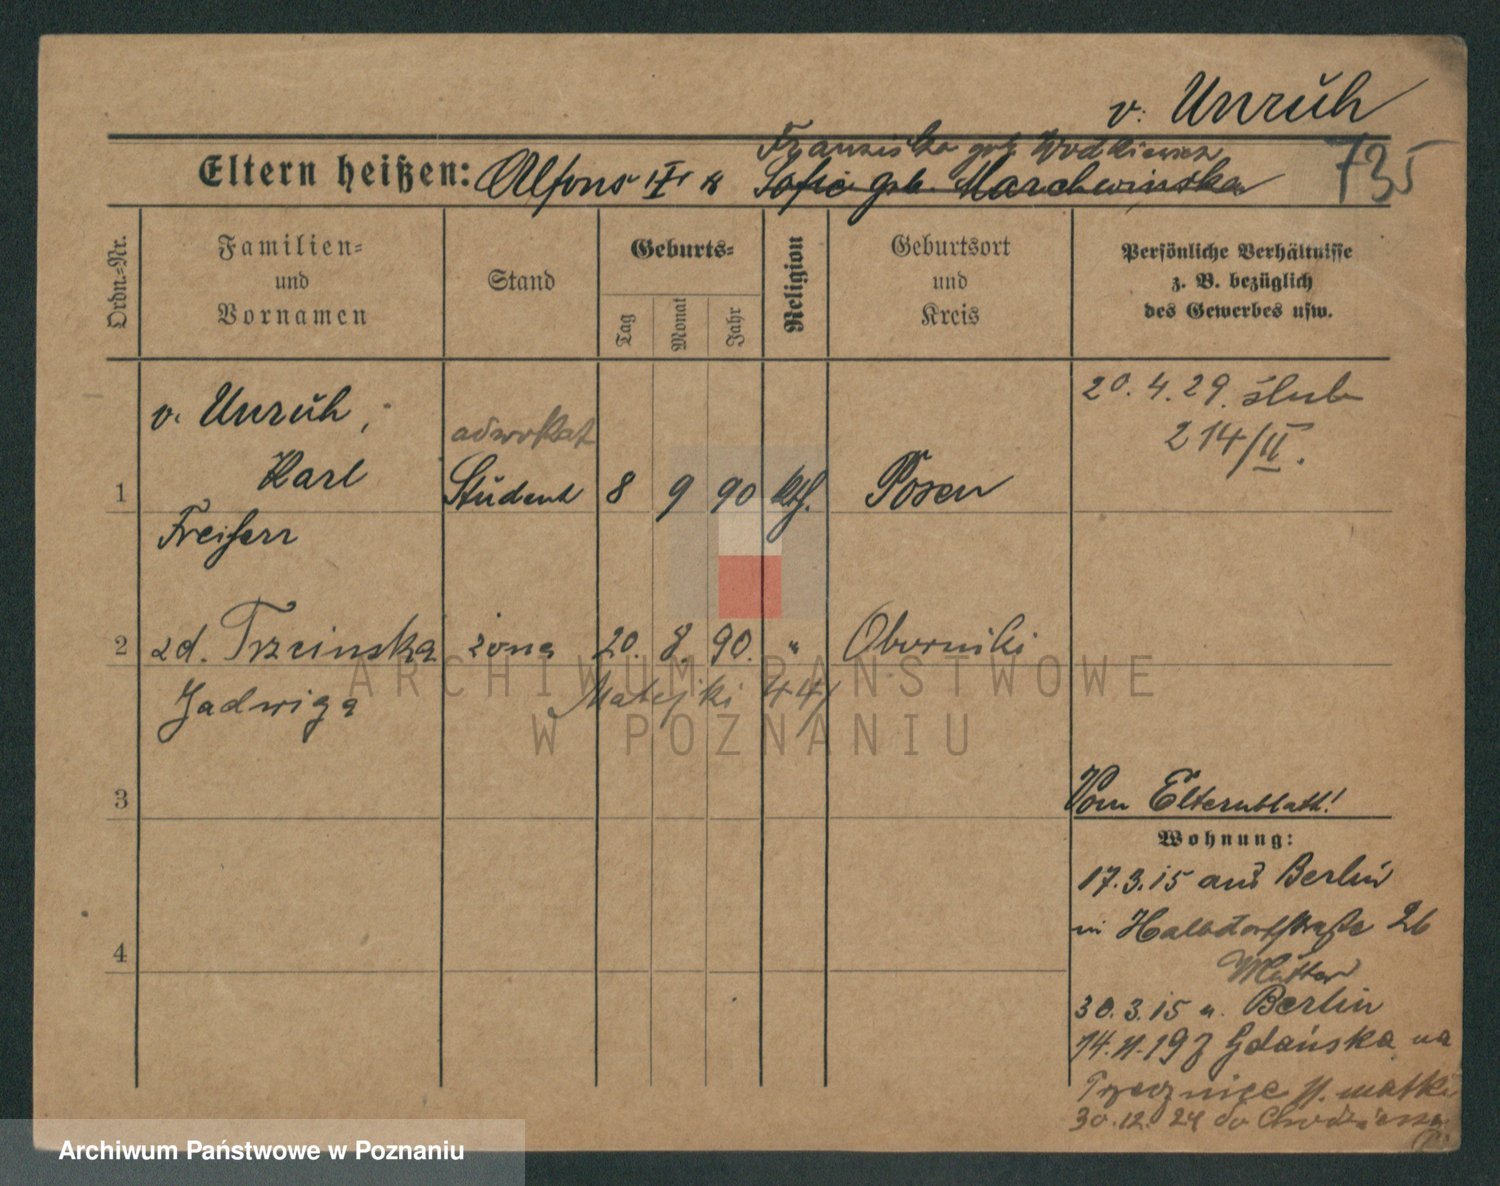 v. Unruh
Franziska geb. Wodkiewicz
Eltern heißen: Alfons Sofie geb. Marchwinska
735
Ordn.-Nr.
Familien- und Vornamen
Stand
Geburts-
Tag
Monat
Jahr
Religion
Geburtsort und Kreis
Persönliche Verhältnisse
z. B. bezüglich
des Gewerbes usw.
20.4.29. ślub
214/II.
v. Unruh,
adwokat
1 Karl Student 8 9 90 kth. Posen
Freiherr
2 zd. Trzcinska żona 20. 8. 90. " Oborniki
Jadwiga Matejki 44
3
Vom Elternblatt!
Wohnung:
17.3.15 aus Berlin
in Halbdorfstraße 26
Mutter
30.3.15 n. Berlin
14.11.19 z Gdańska na
matki
4
30.12.24 do
ARCHIWUM PAŃSTWOWE
W POZNANIU
Archiwum Państwowe w Poznaniu